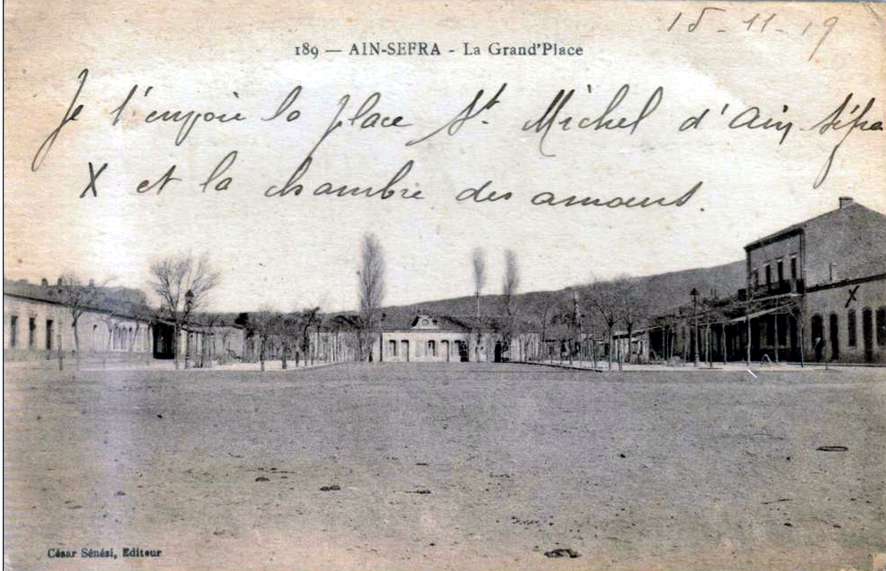 15-11-19
189 — AIN-SEFRA - La Grand'Place
Je t'envoie la place St. Michel d'Ain Séfra
X et la chambre des amours.
X
César Sénési, Editeur